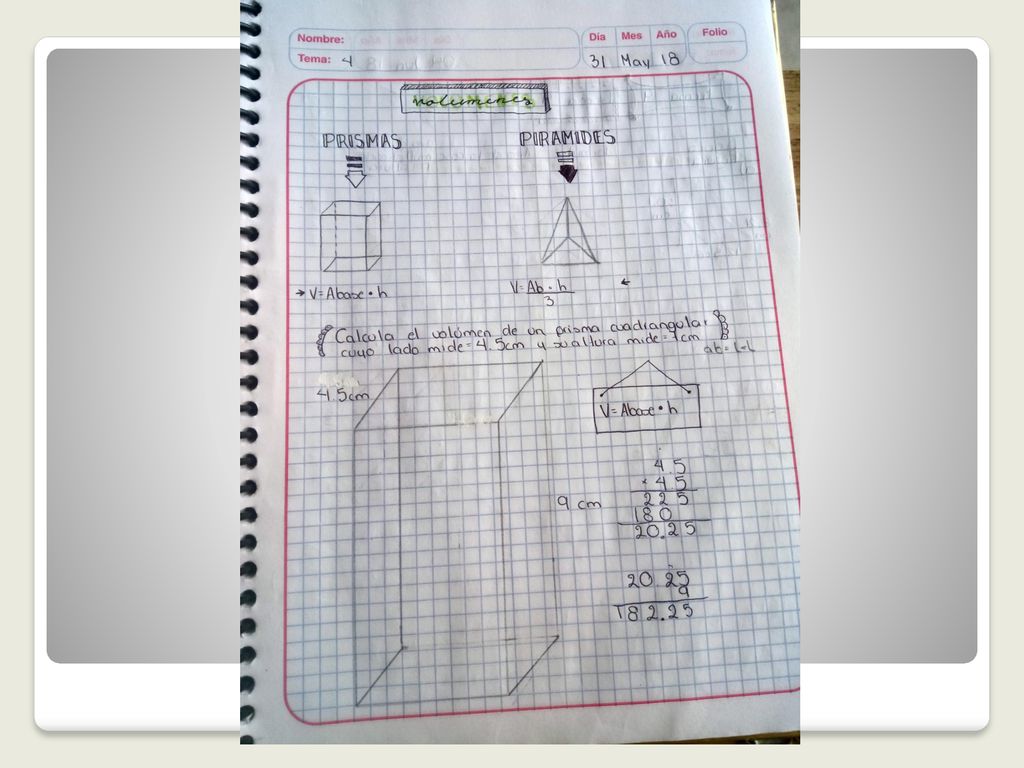 Nombre:
Día Mes Año Folio
Tema: 4
31 May 18
volumenes
PRISMAS
PIRAMIDES
→ V=Abase•h
V=Ab•h
3
←
Calcula el volúmen de un prisma cuadrangular
cuyo lado mide=4.5cm y su altura mide=9cm
ab=L•L
4.5cm
V=Abase•h
9 cm
4.5
×4.5
225
180
20.25
20.25
9
182.25